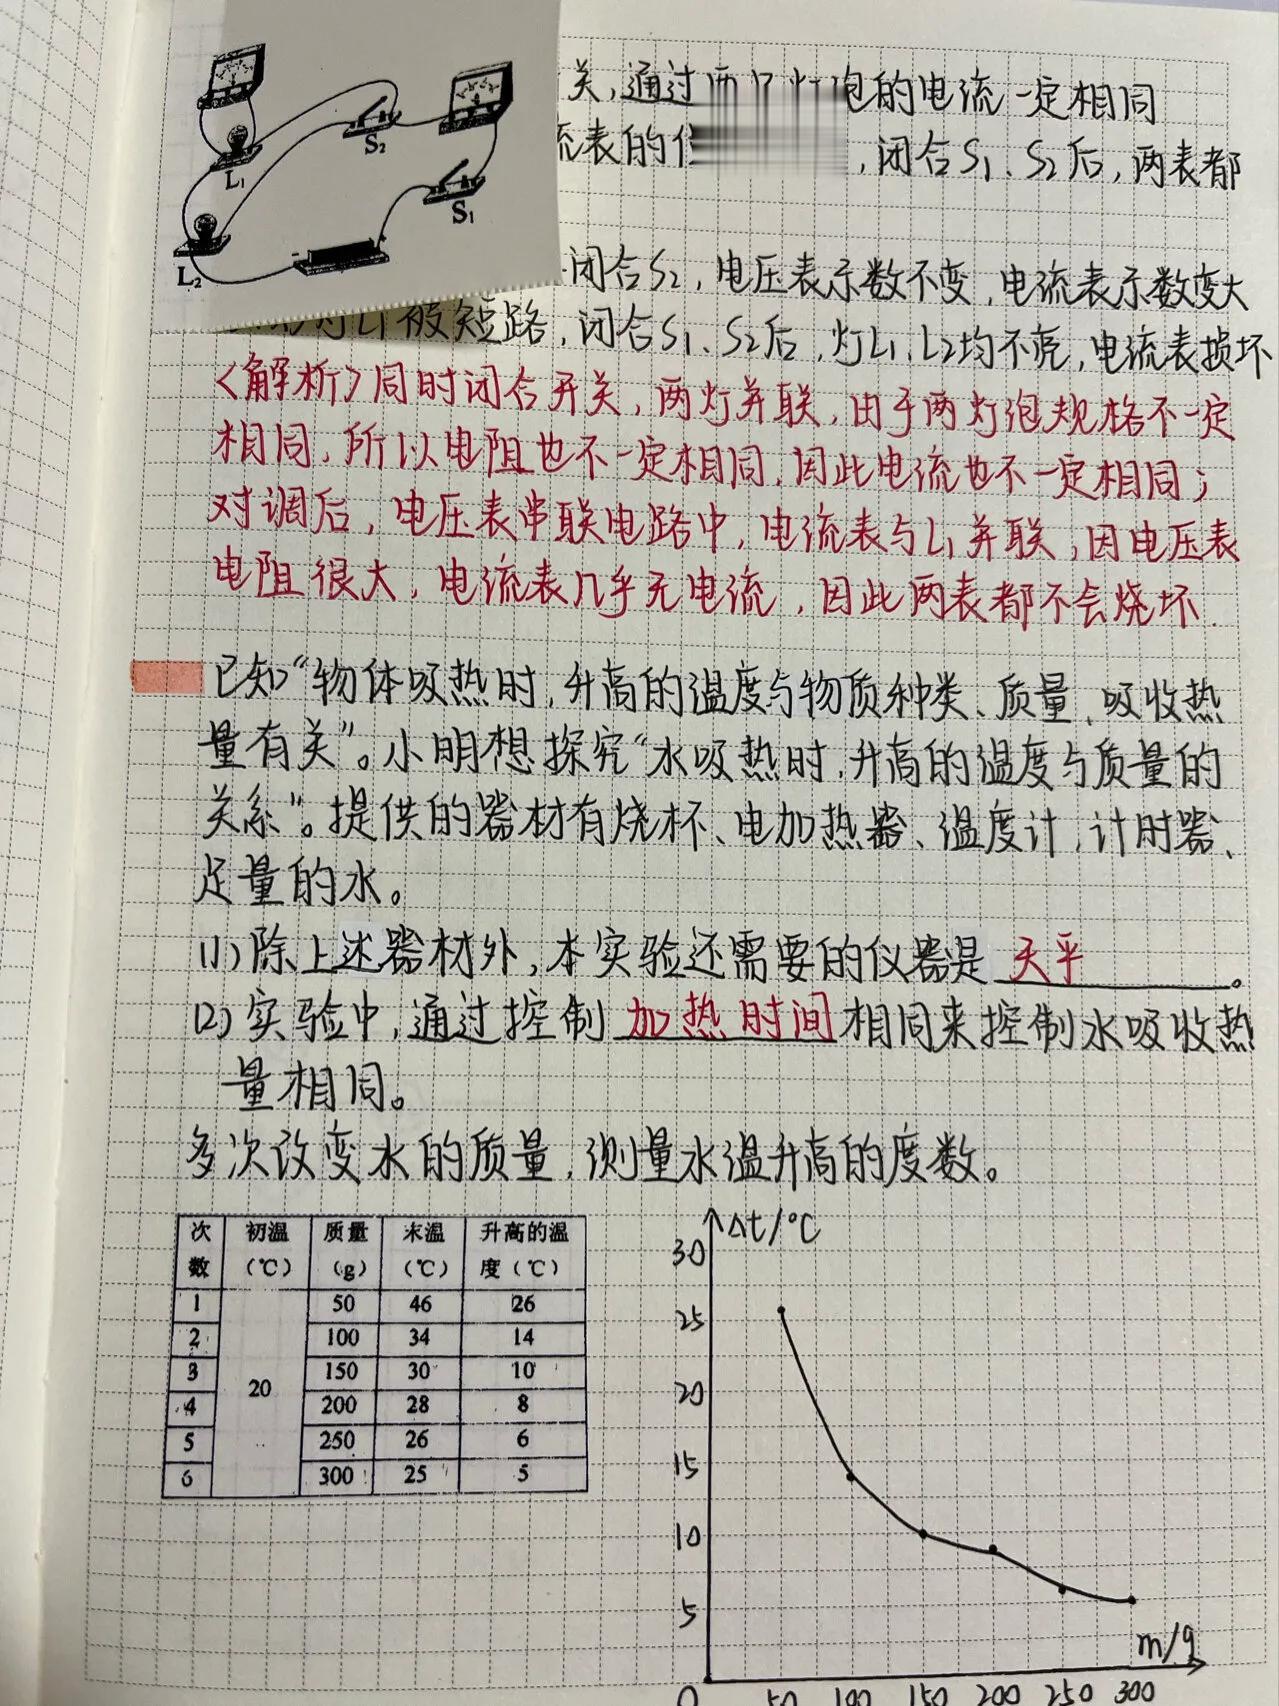 S₂
L₁
S₁
L₂
关,通过两只灯泡的电流一定相同
流表的位,闭合S₁、S₂后,两表都
闭合S₂,电压表示数不变,电流表示数变大
灯L₁被短路,闭合S₁、S₂后,灯L₁、L₂均不亮,电流表损坏
<解析>同时闭合开关,两灯并联,由于两灯泡规格不一定
相同,所以电阻也不一定相同,因此电流也不一定相同;
对调后,电压表串联电路中,电流表与L₁并联,因电压表
电阻很大,电流表几乎无电流,因此两表都不会烧坏.
已知“物体吸热时,升高的温度与物质种类、质量、吸收热
量有关”。小明想探究“水吸热时,升高的温度与质量的
关系”。提供的器材有烧杯、电加热器、温度计、计时器、
足量的水。
(1)除上述器材外,本实验还需要的仪器是 天平 。
(2)实验中,通过控制 加热时间 相同来控制水吸收热
量相同。
多次改变水的质量,测量水温升高的度数。
次数 初温(℃) 质量(g) 末温(℃) 升高的温度(℃)
1 20 50 46 26
2 100 34 14
3 150 30 10
4 200 28 8
5 250 26 6
6 300 25 5
Δt/℃
30
25
20
15
10
5
m/g
0 50 100 150 200 250 300